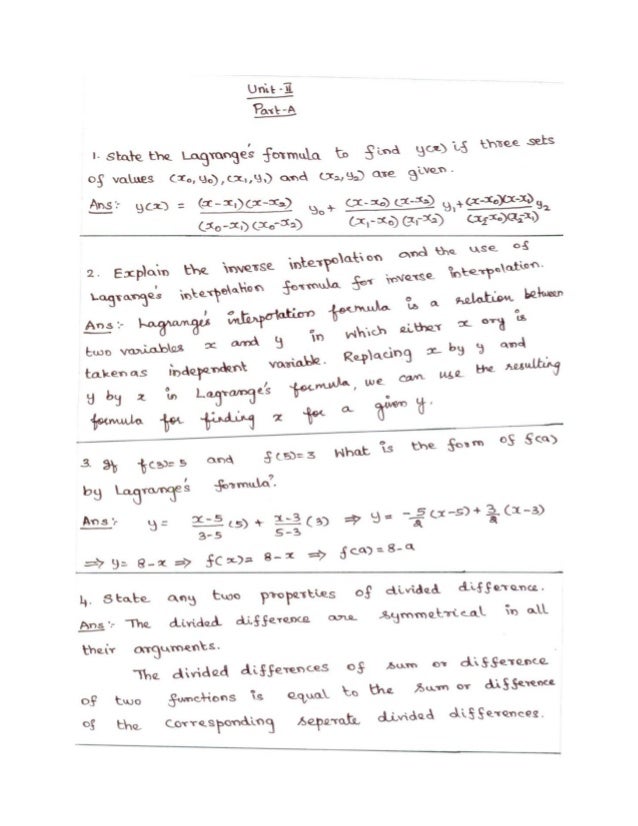 Unit - II
Part - A
1. State the Lagrange's formula to find y(x) if three sets
of values (x₀, y₀), (x₁, y₁) and (x₂, y₂) are given.
Ans:- y(x) = (x-x₁)(x-x₂) / (x₀-x₁)(x₀-x₂) y₀ + (x-x₀)(x-x₂) / (x₁-x₀)(x₁-x₂) y₁ + (x-x₀)(x-x₁) / (x₂-x₀)(x₂-x₁) y₂
2. Explain the inverse interpolation and the use of
Lagrange's interpolation formula for inverse interpolation.
Ans:- Lagrange's interpolation formula is a relation between
two variables x and y in which either x or y is
taken as independent variable. Replacing x by y and
y by x in Lagrange's formula, we can use the resulting
formula for finding x for a given y.
3. If f(3)=5 and f(5)=3 What is the form of f(a)
by Lagrange's formula?
Ans:- y = x-5 / 3-5 (5) + x-3 / 5-3 (3) ⇒ y = -5/2 (x-5) + 3/2 (x-3)
⇒ y = 8-x ⇒ f(x) = 8-x ⇒ f(a) = 8-a
4. State any two properties of divided difference.
Ans:- The divided difference are symmetrical in all
their arguments.
The divided differences of sum or difference
of two functions is equal to the sum or difference
of the corresponding seperate divided differences.